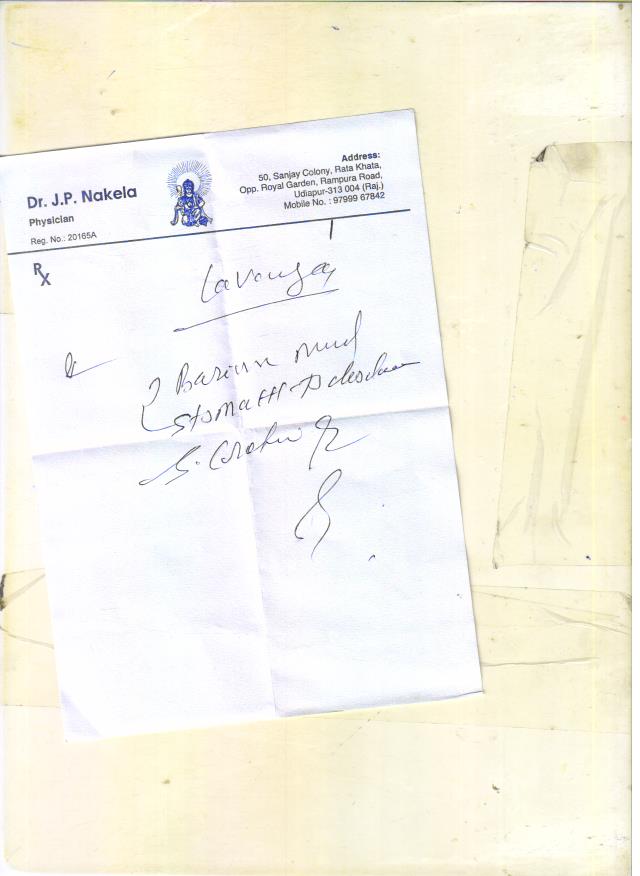 Dr. J.P. Nakela
Physician
Reg. No.: 20165A
Address:
50, Sanjay Colony, Rata Khata,
Opp. Royal Garden, Rampura Road,
Udiapur-313 004 (Raj.)
Mobile No. : 97999 67842
Rx
Barium Meal
Stomach
S.